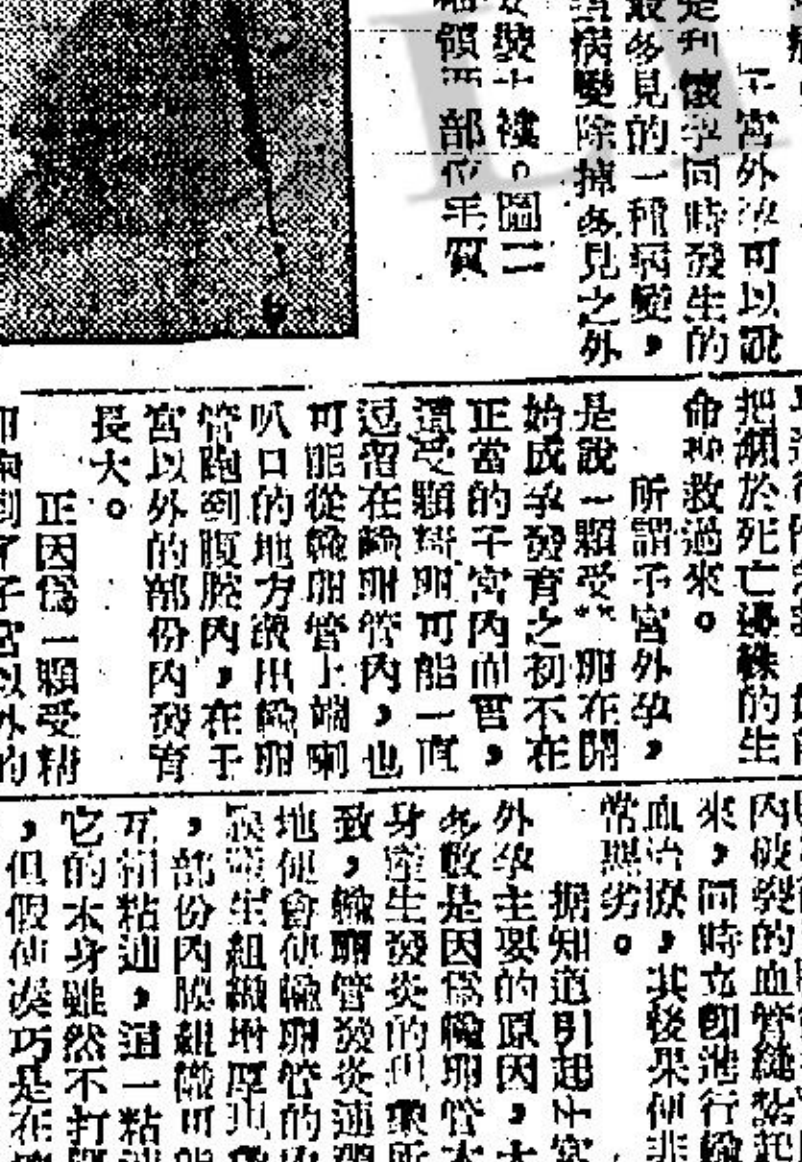 子宮外孕可以說
是和懷孕同時發生的
最多見的一種病變，
病變除掉多見之外
裝上褸。圖二
領兩部位平質
把瀕於死亡邊緣的生
命挽救過來。
所謂子宮外孕，
是說一顆受卵在開
始成孕發育之初不在
正當的子宮內而言，
這受顆卵可能一直
逗留在輸卵管內，也
可能從輸卵管上端喇
叭口的地方出輸卵
管跑到腹腔內，在子
宮以外的部份內發育
長大。
正因爲一顆受精
到了子宮以外的
內破裂的血管縫紮起
來，同時立卽進行輸
血治療，其後果便非
常惡劣。
据知道引起子宮
外孕主要的原因，大
多數是因爲輸卵管本
身產生發炎的現象所
致，輸卵管發炎
地便會使輸卵管的
組織增厚
，部份內膜組織可能
互相粘連，這一粘
它的本身雖然不打
，但假使湊巧是在